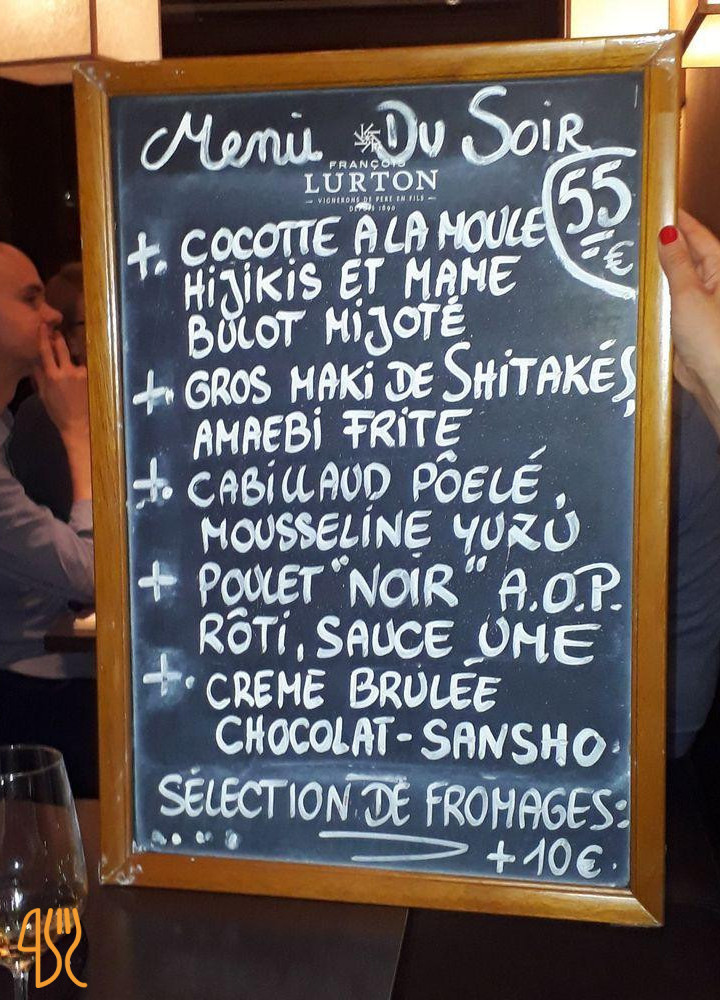 Menu Du Soir
FRANÇOIS
LURTON
VIGNERONS DE PÈRE EN FILS
DEPUIS 1890
55
€
+. COCOTTE A LA MOULE
HIJIKIS ET MAME
BULOT MIJOTÉ
+. GROS MAKI DE SHITAKÉS,
AMAEBI FRITE
+. CABILLAUD PÔELÉ,
MOUSSELINE YUZU
+ POULET "NOIR" A.O.P.
RÔTI, SAUCE UME
+. CREME BRULÉE
CHOCOLAT-SANSHO
SÉLECTION DE FROMAGES:
+10€.